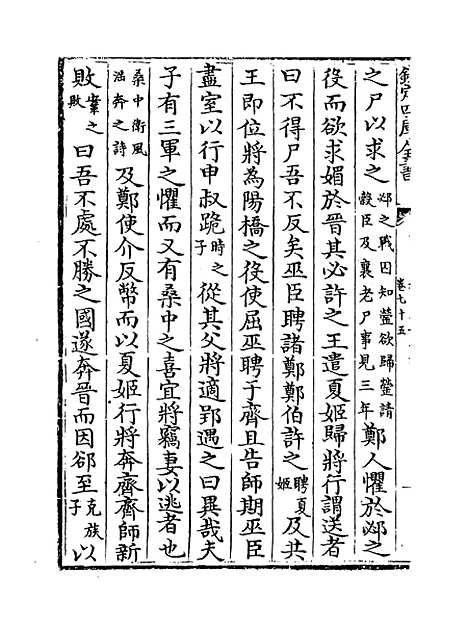 欽定四庫全書
卷七十五
之尸以求之邲之戰因知罃欲歸罃請
穀臣及襄老尸事見三年鄭人懼於邲之
役而欲求媚於晉其必許之王遣夏姬歸將行謂送者
曰不得尸吾不反矣巫臣聘諸鄭鄭伯許之聘夏
姬及共
王即位將為陽橋之役使屈巫聘于齊且告師期巫臣
盡室以行申叔跪時之
子從其父將適郢遇之曰異哉夫
子有三軍之懼而又有桑中之喜宜將竊妻以逃者也
桑中衛風
淫奔之詩及鄭使介反幣而以夏姬行將奔齊齊師新
敗鞌之
敗曰吾不處不勝之國遂奔晉而因郤至克族
子以